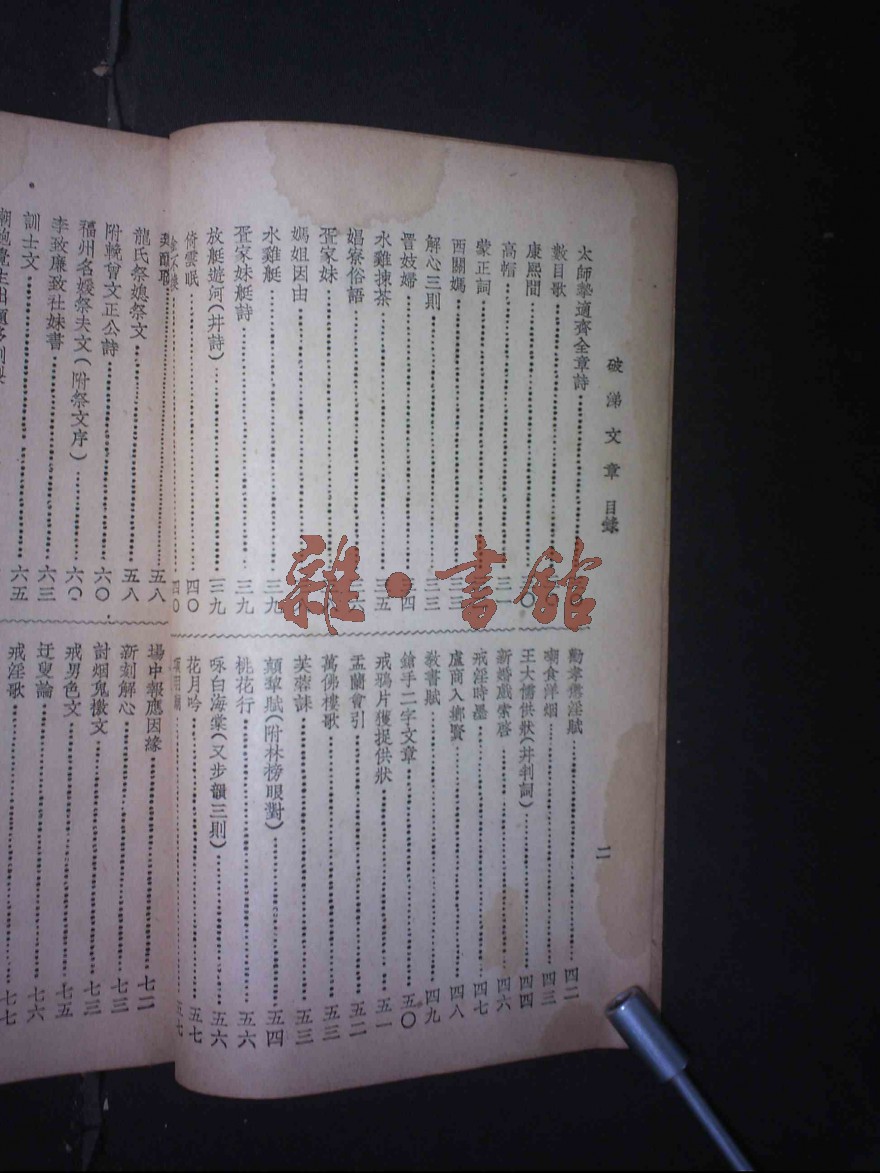 破涕文章目錄
二
太師摯適齊全章詩
數目歌
康熙間
高帽
蒙正詞
西關媽
解心三則 三三
晋妓婦
水雞揀茶
娼寮俗語
疍家妹
媽姐因由
水雞艇 三九
疍家妹艇詩 三九
放艇遊河(并詩) 三九
倚雲眠 四〇
四〇
勸孝戒淫賦 四二
嘲食洋烟 四三
王大儒供狀(并判詞) 四四
新婚戲索啓 四六
戒淫時墨 四七
盧商入鄉賢 四八
敎書賦 四九
鎗手二字文章 五〇
戒鴉片獲捉供狀 五一
盂蘭會引 五二
萬佛樓歌 五三
芙蓉誄 五三
顛犂賦(附林榜眼對) 五四
桃花行 五六
咏白海棠(又步韻三則) 五六
花月吟 五七
五七
五八
龍氏祭媳祭文 五八
附輓曾文正公詩 六〇
福州名媛祭夫文(附祭文序) 六〇
李玫廉致社妹書 六三
訓士文 六五
場中報應因緣 七二
新刻解心 七三
討烟鬼檄文 七三
戒男色文 七五
迂叟論 七六
戒淫歌 七七
雜·書館